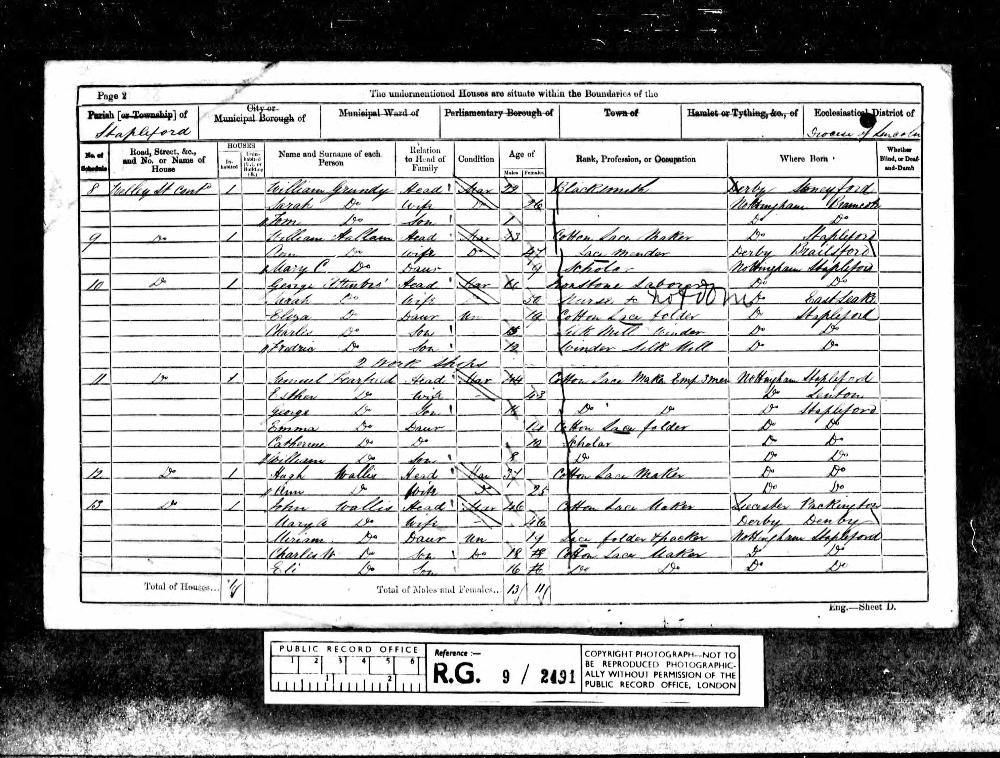 Page 2
The undermentioned Houses are situate within the Boundaries of the
Parish [or Township] of
City or Municipal Borough of
Municipal Ward of
Parliamentary Borough of
Town of
Hamlet or Tything, &c., of
Ecclesiastical District of
Stapleford
Diocese of Lincoln
No. of Schedule
Road, Street, &c., and No. or Name of House
HOUSES
Inhabited
Name and Surname of each Person
Relation to Head of Family
Condition
Age of
Males Females
Rank, Profession, or Occupation
Where Born
Whether Blind, or Deaf-and-Dumb
8 1 William Grundy Head Mar Blacksmith Derby Stoneyford
Sarah Do Wife Do 26 Nottingham Bramcote
Tom Do Son 1 Do Do
9 Do 1 William Hallam Head Mar 43 Cotton Lace Maker Do Stapleford
Ann Do Wife Do 47 Lace Mender Derby Brailsford
Mary C. Do Daur 9 Scholar Nottingham Stapleford
10 Do 1 George Head Mar Ironstone Laborer Do Do
Sarah Do Wife 50 Nurse not dom Do East Leake
Eliza Do Daur Un 19 Cotton Lace folder Do Stapleford
Charles Do Son 15 Silk Mill Winder Do Do
Fredric Do Son 12 Winder Silk Mill Do Do
2 Work Shops
11 Do 1 Samuel Head Mar 44 Cotton Lace Maker Emp 3 men Nottingham Stapleford
Esther Do Wife 43 Do Lenton
George Do Son Do Do Do Stapleford
Emma Do Daur Cotton Lace folder Do Do
Catherine Do Do 10 Scholar Do Do
William Do Son 8 Do Do Do
12 Do 1 Hugh Wallis Head Mar 37 Cotton Lace Maker Do Do
Ann Do Wife Do 25 Do Do
13 Do 1 John Wallis Head Mar 46 Cotton Lace Maker Leicester Packington
Mary A Do Wife 46 Derby Denby
Miriam Do Daur Un 19 Lace folder & packer Nottingham Stapleford
Charles W Do Son Do 18 Cotton Lace Maker Do Do
Eli Do Son 16 Do Do Do Do
Total of Houses...
Total of Males and Females... 13 11
Eng.—Sheet D.
PUBLIC RECORD OFFICE
1 2 3 4 5 6
1 2
Reference :—
R.G. 9 / 2491
COPYRIGHT PHOTOGRAPH—NOT TO
BE REPRODUCED PHOTOGRAPHIC-
ALLY WITHOUT PERMISSION OF THE
PUBLIC RECORD OFFICE, LONDON